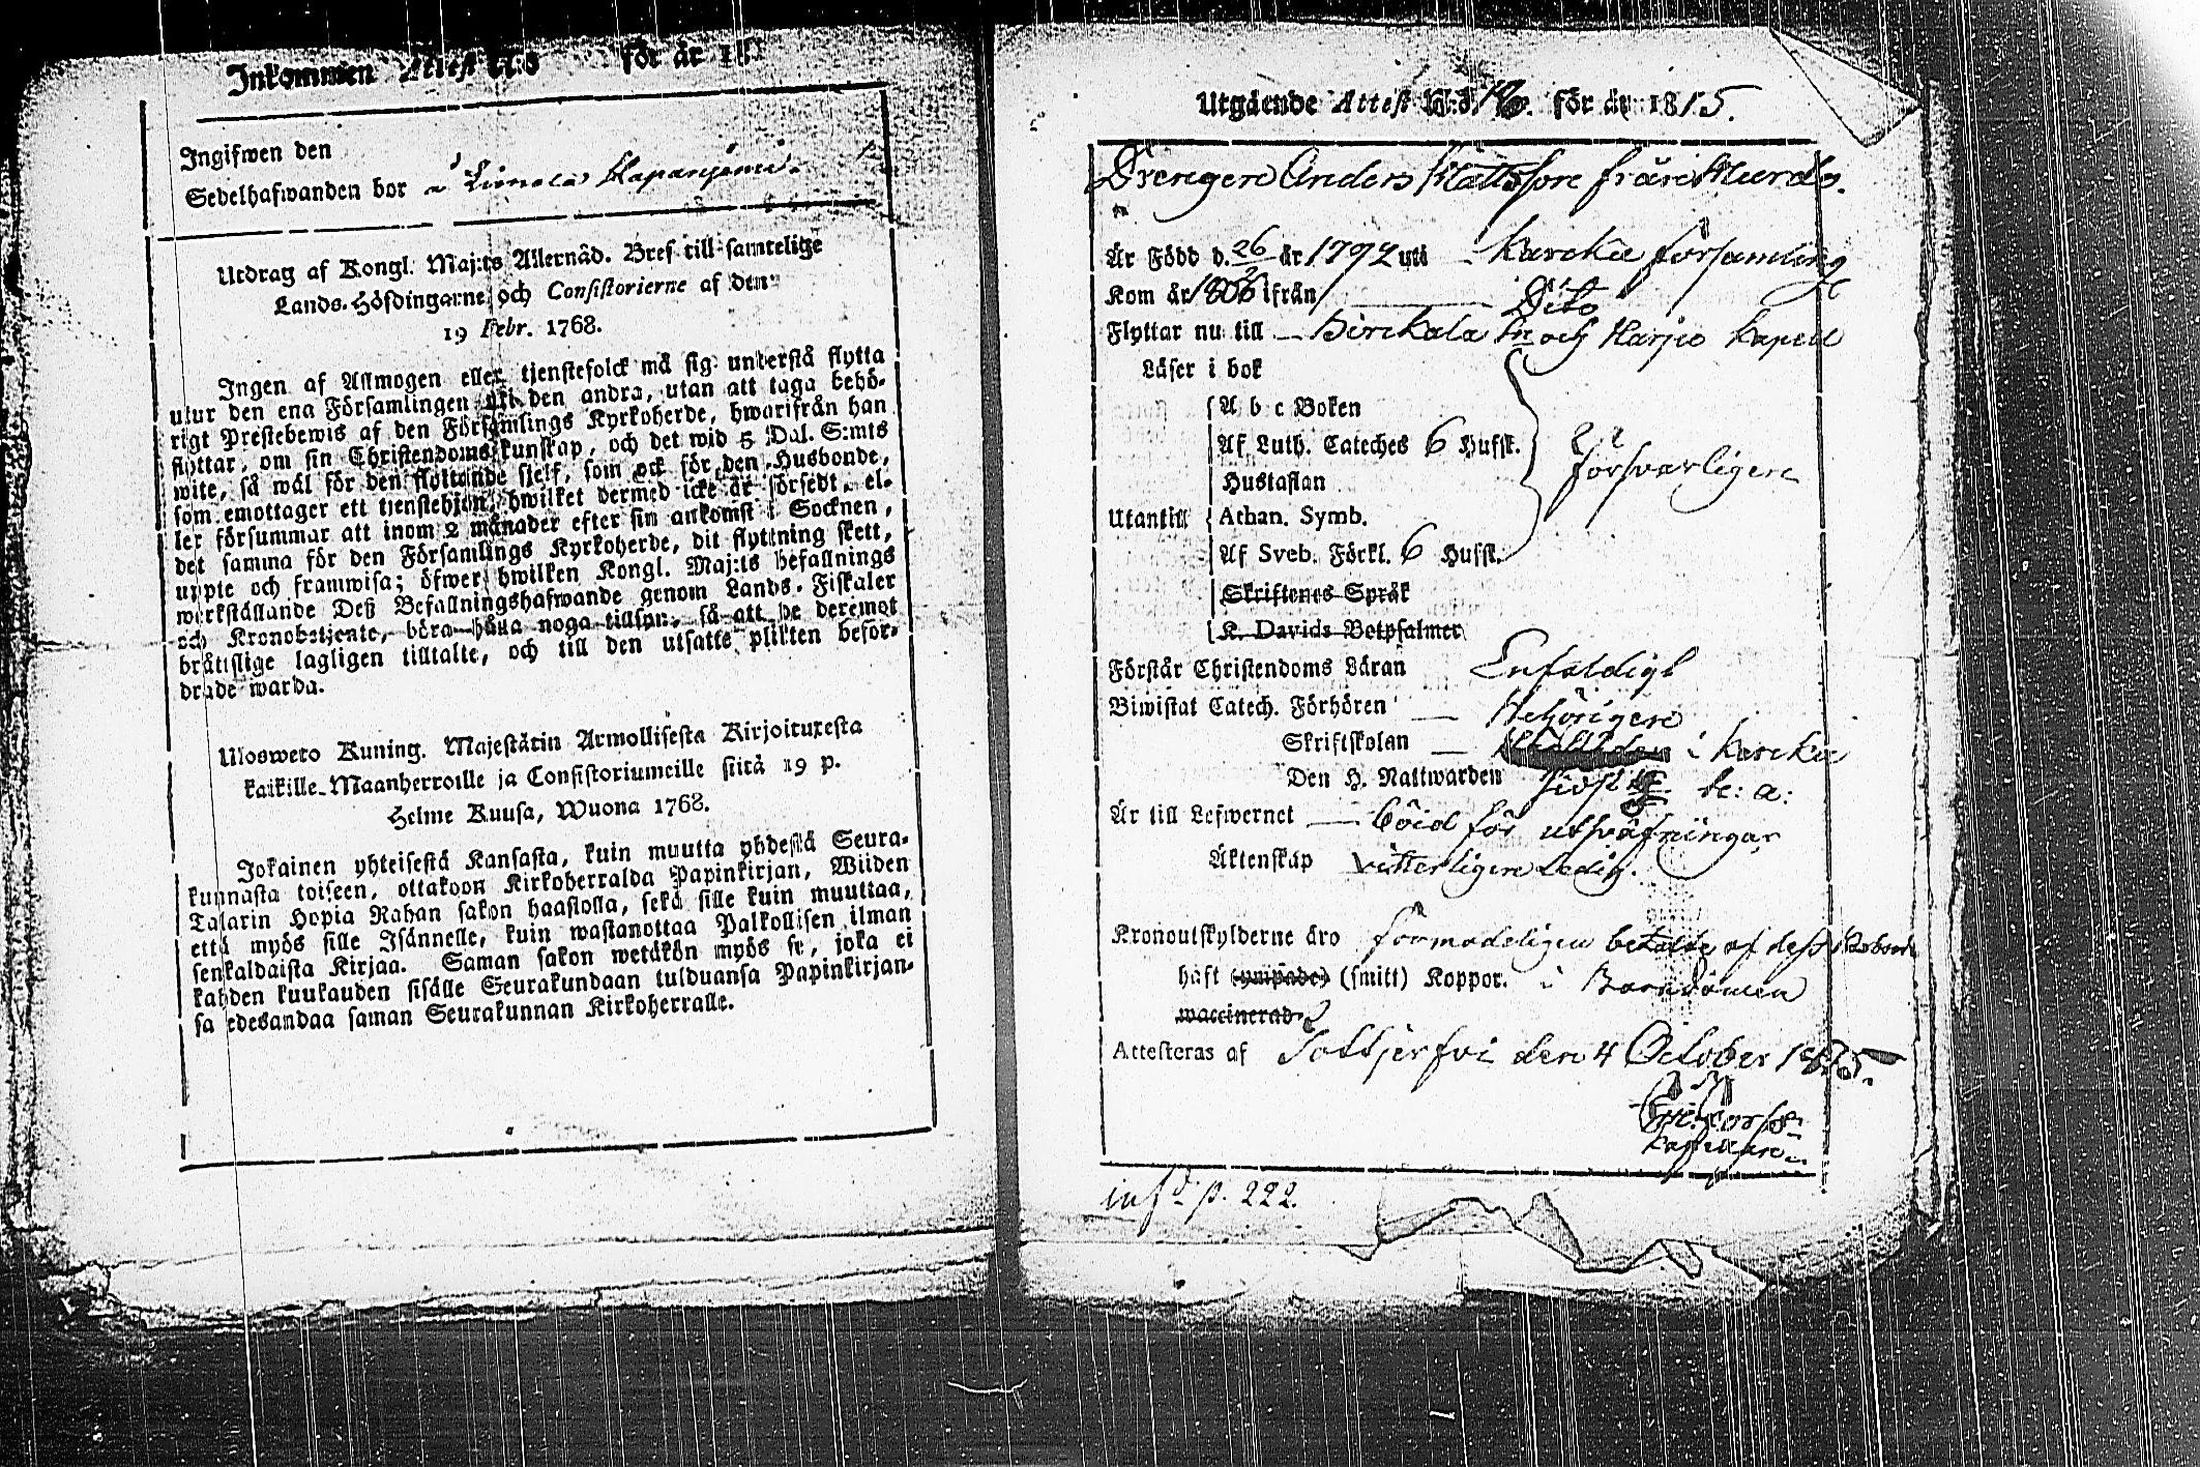 Inkommen Attest N:o för år 18
Ingifwen den
Sedelhafwanden bor
Utdrag af Kongl. Maj:ts Allernåd. Bref till samtelige
Lands-Höfdingarne och Consistorierne af den
19 Febr. 1768.
Ingen af Allmogen eller tjenstefolck må sig understå flytta
utur den ena Församlingen uti den andra, utan att taga behö-
rigt Prestebewis af den Församlings Kyrkoherde, hwarifrån han
flyttar, om sin Christendoms kunskap, och det wid 5 Dal. S:mts
wite, så wäl för den flyttande sjelf, som ock för den Husbonde,
som emottager ett tjenstehjon, hwilket dermed icke är försedt, el-
ler försummar att inom 2 månader efter sin ankomst i Socknen,
det samma för den Församlings Kyrkoherde, dit flyttning skett,
uppte och framwisa; öfwer hwilken Kongl. Maj:ts befallnings
werkställande Deß Befallningshafwande genom Lands-Fiskaler
och Kronobetjente, böra hålla noga tillsyn, så att de deremot
bråttslige lagligen tilltalte, och till den utsatte plikten befor-
drade warda.
Ulosweto Kuning. Majestätin Armollisesta Kirjoituxesta
kaikille Maanherroille ja Consistoriumeille siitä 19 p.
Helme Kuusa, Wuona 1768.
Jokainen yhteisestä Kansasta, kuin muutta yhdestä Seura-
kunnasta toiseen, ottakoon Kirkoherralda Papinkirjan, Wiiden
Talarin Hopia Rahan sakon haastolla, sekä sille kuin muuttaa,
että myös sille Isännelle, kuin wastanottaa Palkollisen ilman
senkaldaista Kirjaa. Saman sakon wetäkön myös se, joka ei
kahden kuukauden sisälle Seurakundaan tulduansa Papinkirjan-
sa edesandaa saman Seurakunnan Kirkoherralle.
Utgående Attest N:o 16. för år 1815.
Drengen Anders Mattsson från
Är Född d. 26 år 1792 uti Karcku församling
Kom år 1806 ifrån Dito
Flyttar nu till Birckala Sn och Harju Kapell
Läser i bok
A b c Boken
Af Luth. Cateches 6 Hufst.
Hustaflan
försvarligen
Utantill Athan. Symb.
Af Sveb. Förkl. 6 Hufst.
Skriftenes Språk
K. Davids Botpsalmer
Förstår Christendoms Läran Enfaldigt
Biwistat Catech. Förhören Behörigen
Skriftskolan i Karcku
Den H. Nattwarden sidst
Är till Lefwernet utsväfningar
Äktenskap vitterligen Ledig.
Kronoutskylderne äro förmodeligen betalte af dess
haft (ympade) (smitt) Koppor. i Barndomen
waccinerad
Attesteras af den 4 October 1815.
inf d. p. 222.